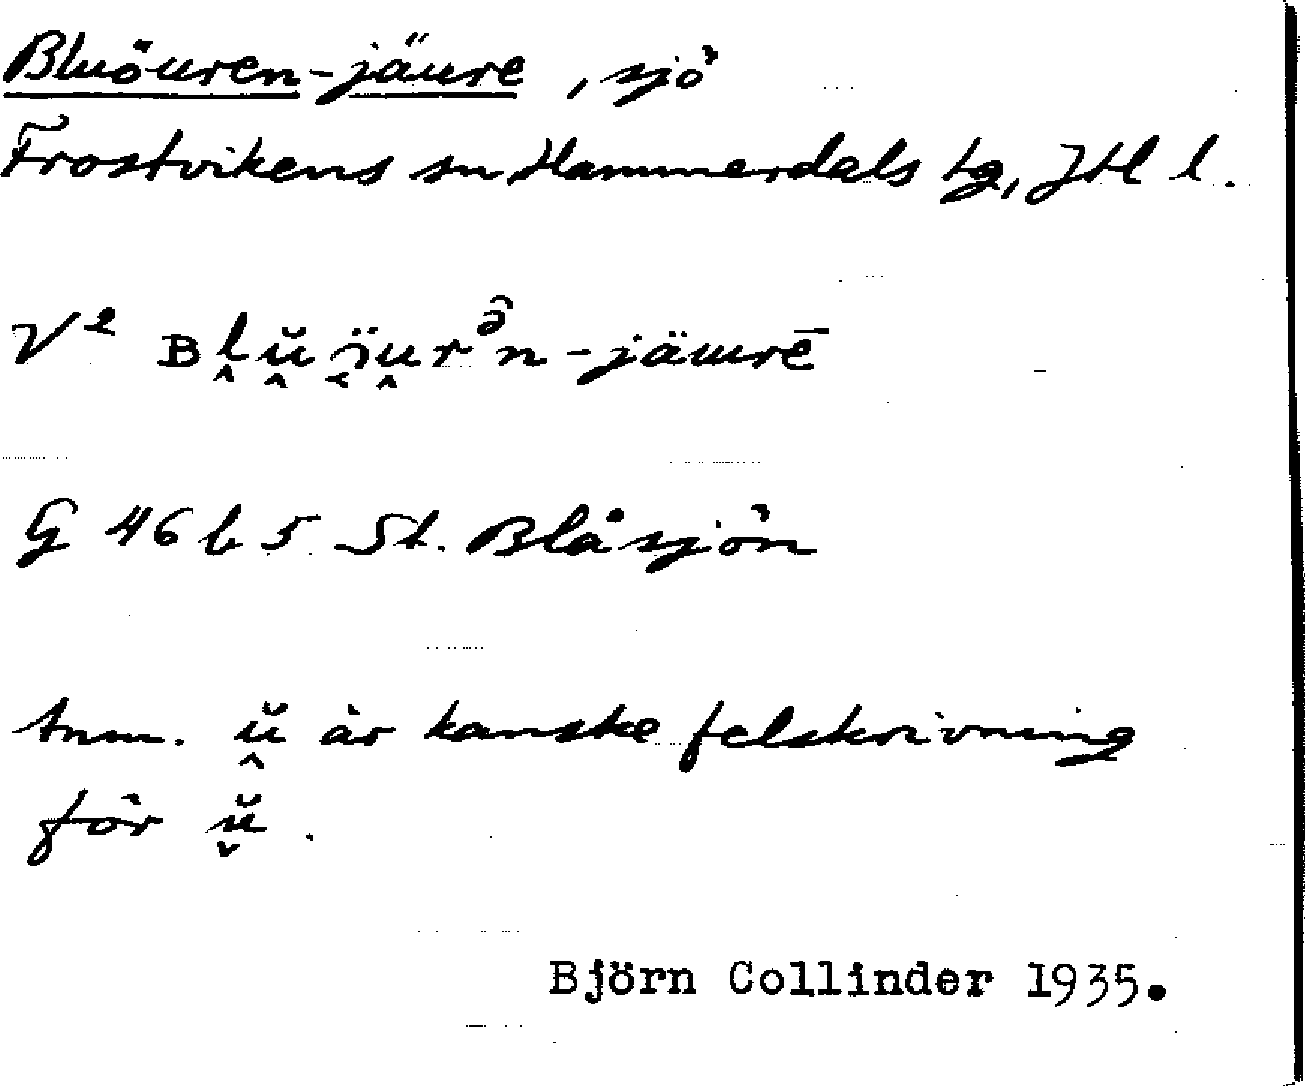 Bluöuren-jäure, sjö
Frostvikens sn Hammerdals tg, Jtl l.
V²
G 46 b 5 St. Blåsjön
Anm. ṷ̆ är kanske felskrivning
för ŭ̬.
Björn Collinder 1935.